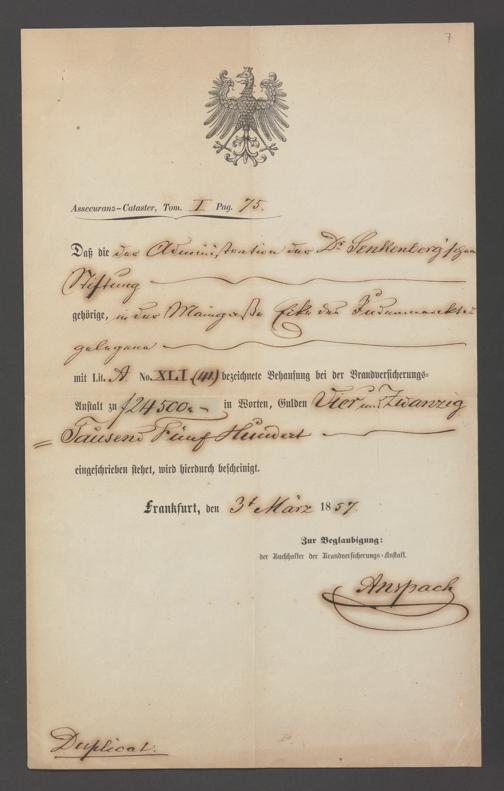 7
Assecuranz-Cataster, Tom. I Pag. 75.
Daß die der Administration der Dr. Senkenberg'schen
Stiftung
gehörige, in der Maingasse Ecke des
gelegene
mit Lit. A. No. XLI (41) bezeichnete Behausung bei der Brandversicherungs-
Anstalt zu f 24500.- in Worten, Gulden Vier und Zwanzig
= Tausend Fünf Hundert
eingeschrieben stehet, wird hierdurch bescheinigt.
Frankfurt, den 3t März 1857
Zur Beglaubigung:
der Buchhalter der Brandversicherungs-Anstalt.
Anspach
Duplicat.